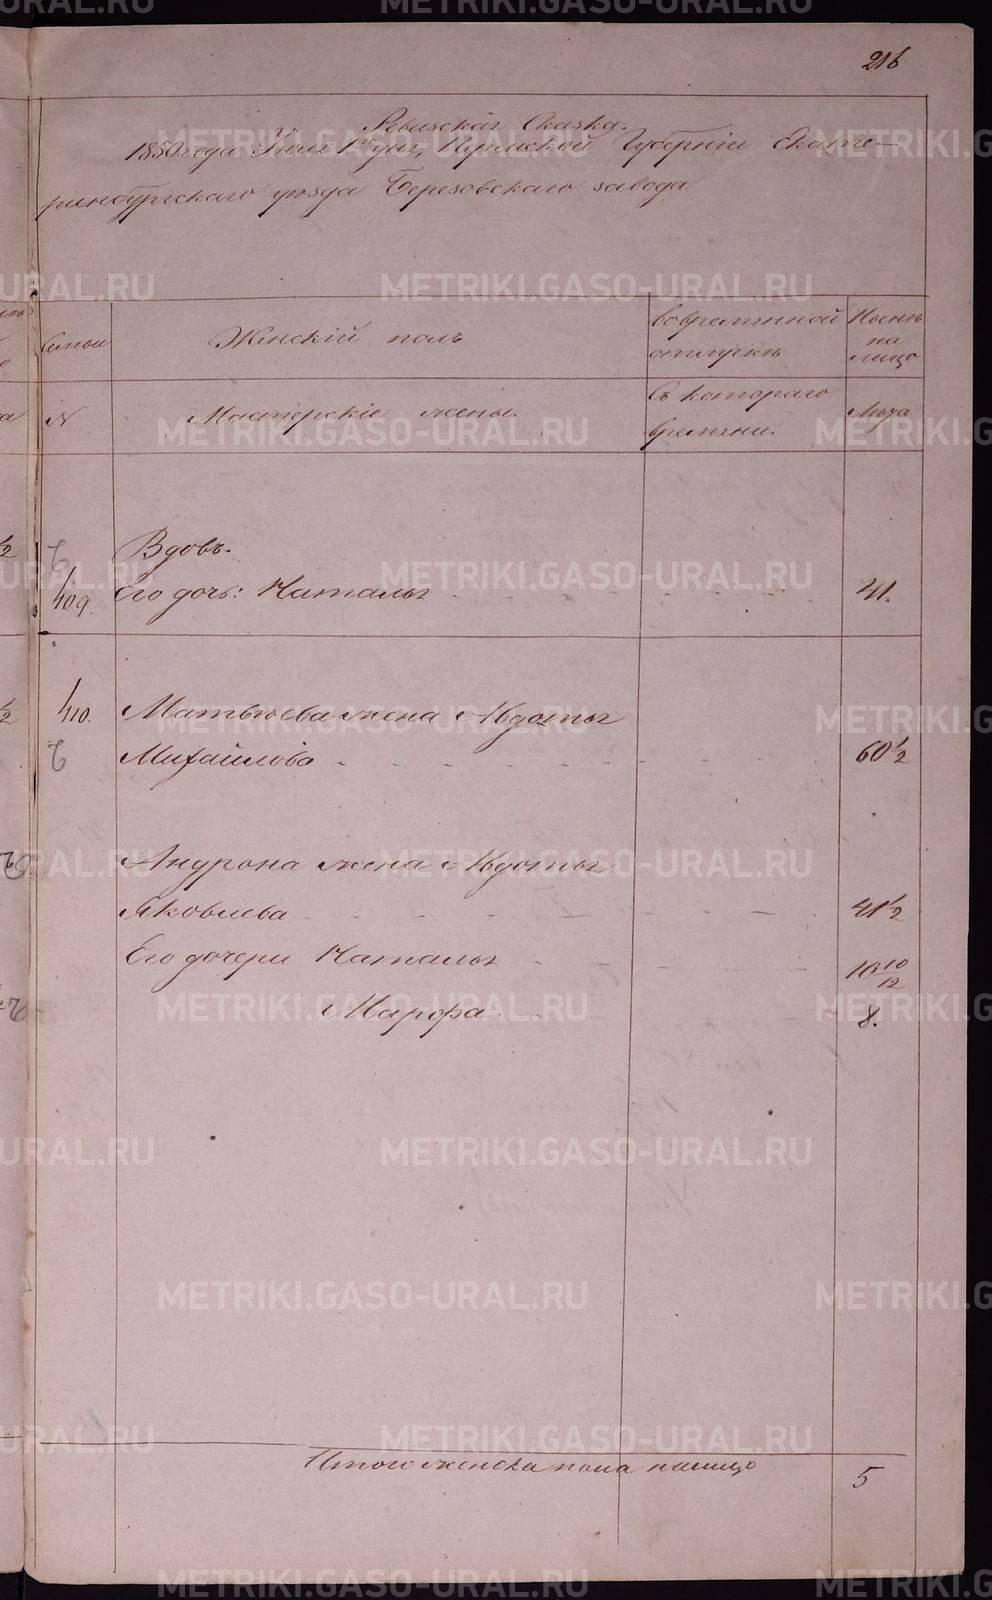 216
Ревизская Сказка.
1850 года Июля 1го дня, Пермской Губернiи Екате–
ринбургскаго уѣзда Березовскаго завода
Семьи
Женскiй полъ
Во временной отлучкѣ
Нынѣ на лицо
№
Мастерскiе жены.
Съ котораго времени.
Лѣта
Вдовъ.
409. Его дочь: Наталья 41.
410. Матвѣева жена Авдотья
Михайлова 60 1/2
Андрона жена Авдотья
Яковлева 41 1/2
Его дочери Наталья 10 10/12
Марфа 8.
Итого женска пола налицо 5
METRIKI.GASO-URAL.RU